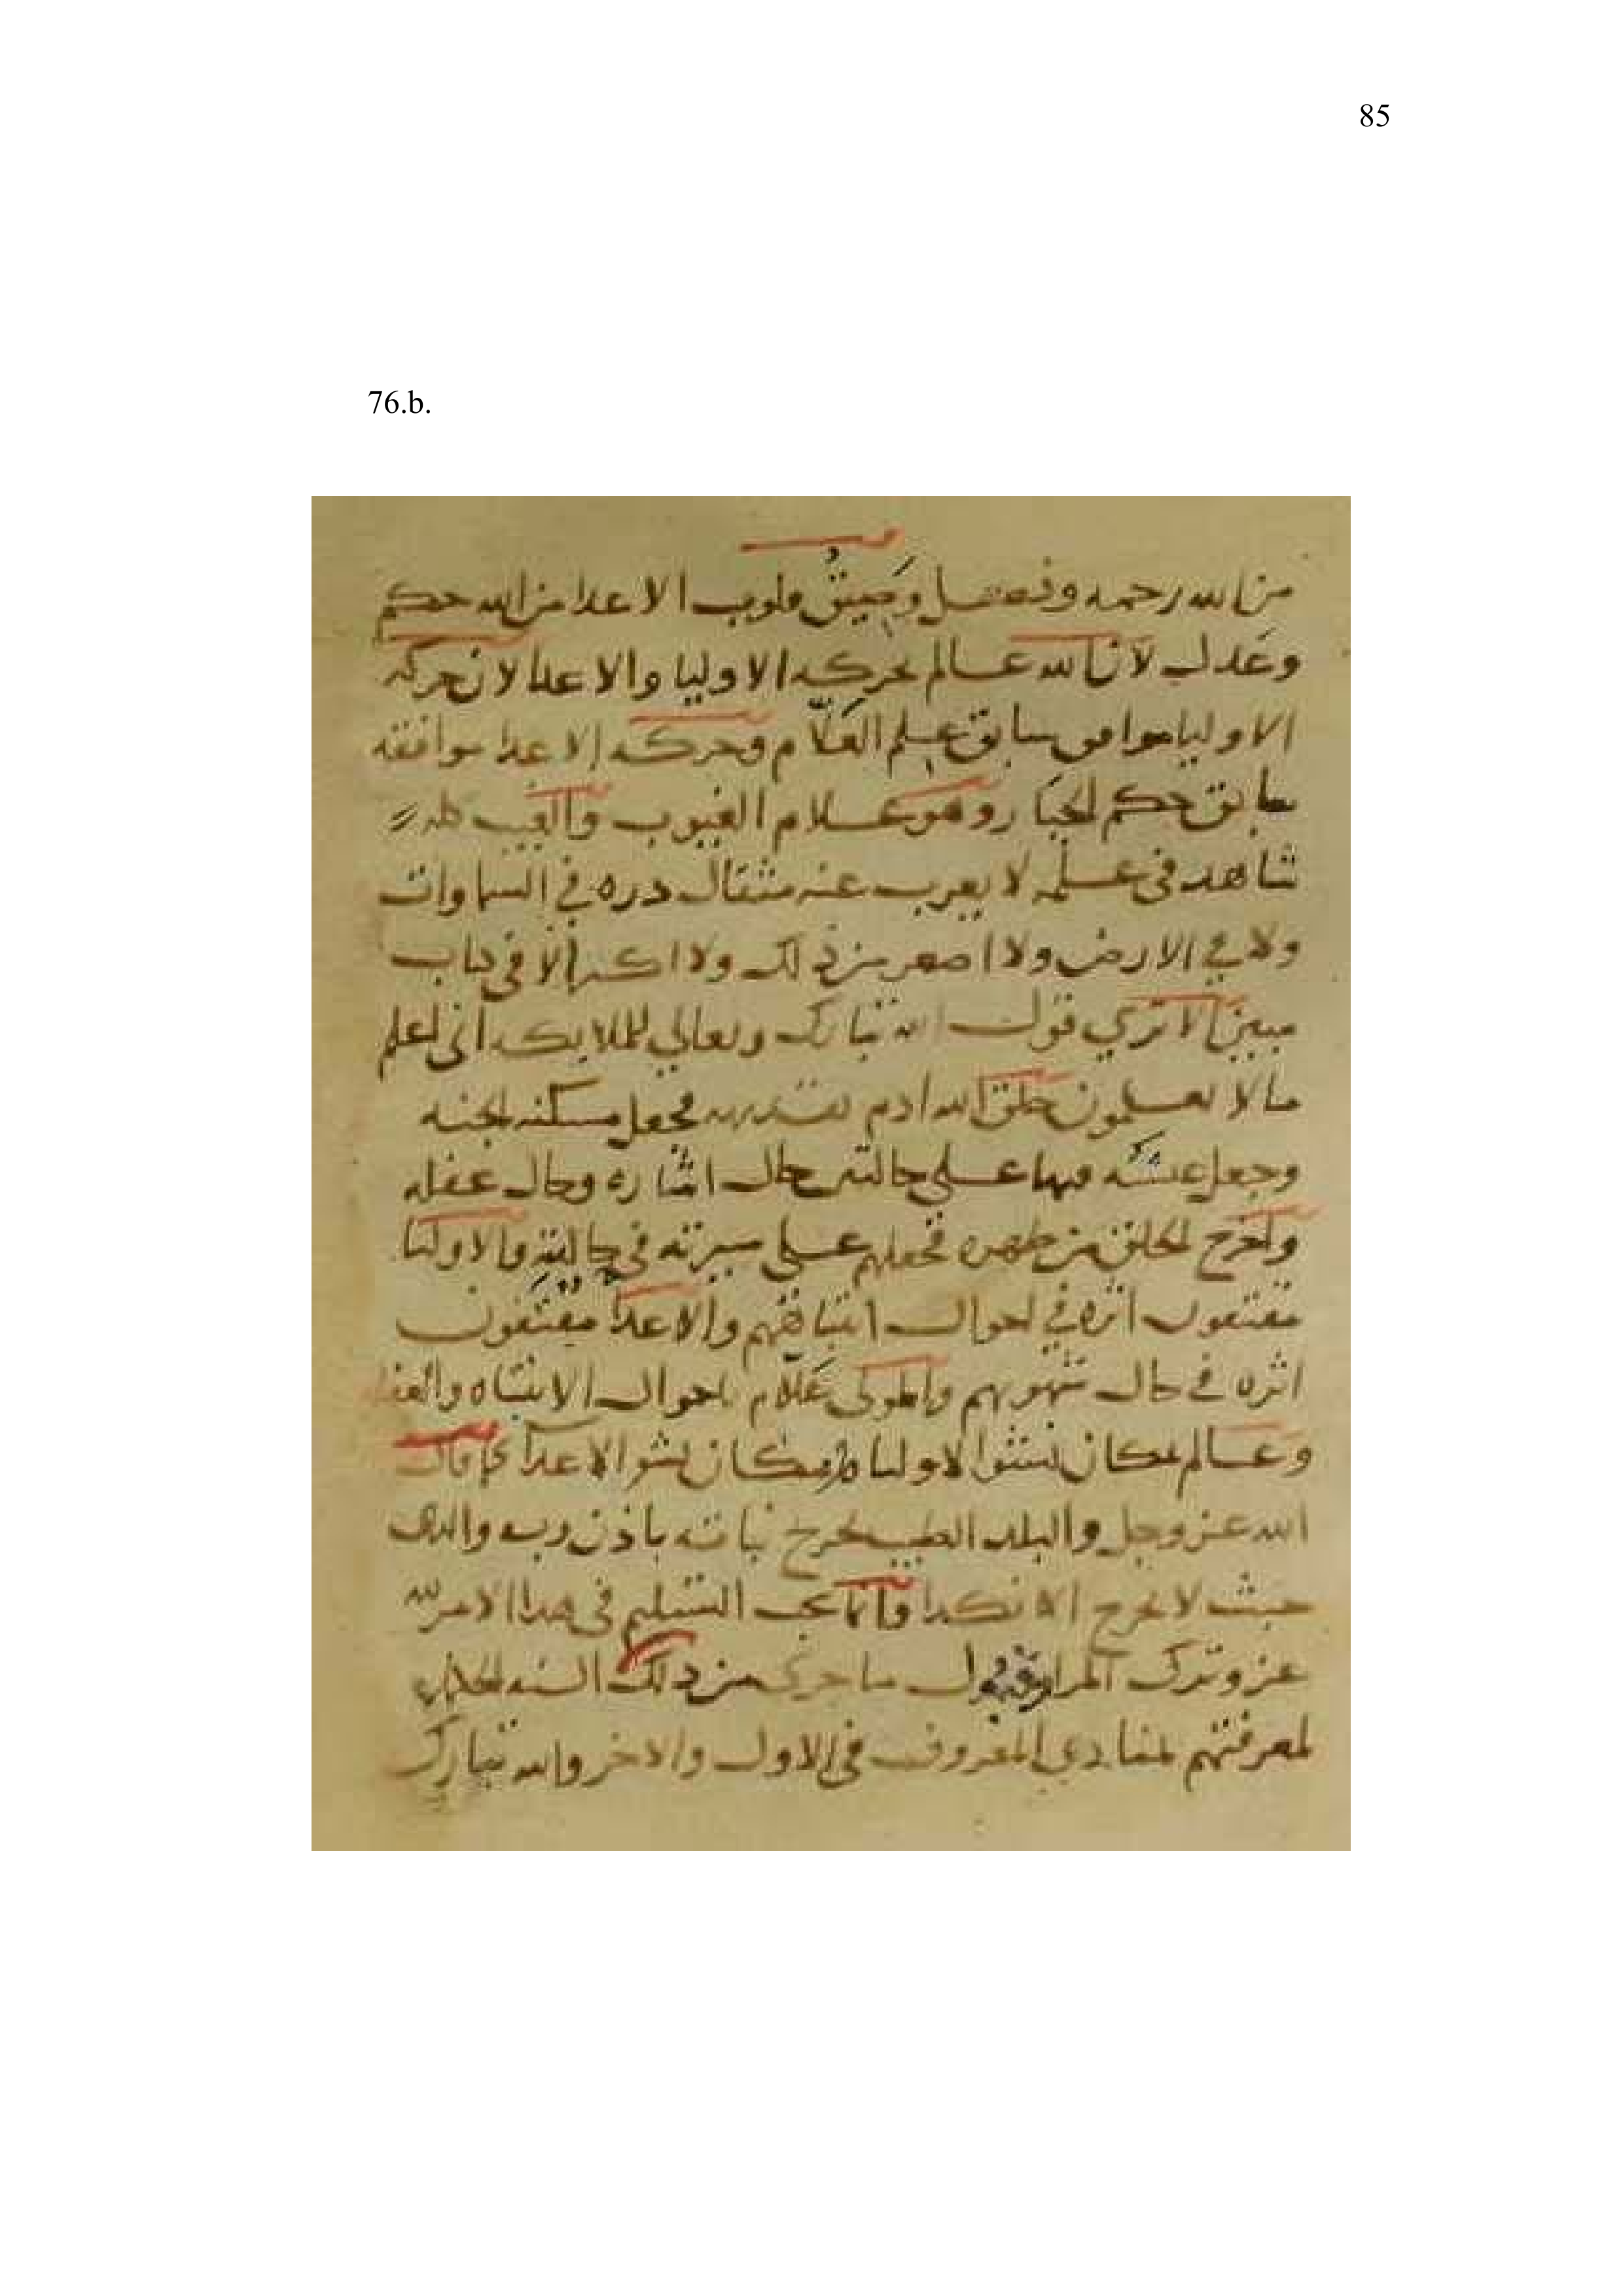 85
76.b.
من الله رحمه وفضل وَضِيقُ قلوب الاعدا من الله حكم
وعَدل لاَن الله عالم بحركه الاوليا والاعدا لان حركه
الاوليا موافق سابق علم العَلّام وحركه الاعدا موافقه
سابق حكم الجبَار وهو علام الغيوب والغيب كله
شاهد فى علمه لا يعزب عنه مثقال دره في السماوات
ولا في الارض ولا اصغر من ذلك ولا اكبر إلّا فى كتاب
مبين الا تري قول الله تبارك وتعالي للملايكه انى اعلم
مالا تعلمون خلق الله ادم بقدرته فجعل مسكنه الجنه
وجعل عيشه فيها على حالتين حال اشاره وحال غفله
واخرج الخلق من ظهره فجعلهم على سيرته فى حالتيه فالاوليا
مقتفون اثره في احوال انتباههم والاعدا مقتفون
اثره في حال شهوتهم والمولى عَلّام باحوال الانتباه والغفله
وعالم بمكان نشوا الاوليا ومكان نشوا الاعدا كما قال
الله عز وجل والبلد الطيب يخرج نباته باذن ربه والذى
خبث لا يخرج الا نكدا وانما يجب التسليم فى هدا الامر لله
عز وترك المرا وقبول ما جرى من ذلك السنه الحكماء
لمعرفتهم لمنا دي المعروف فى الاول والاخر والله تبارك